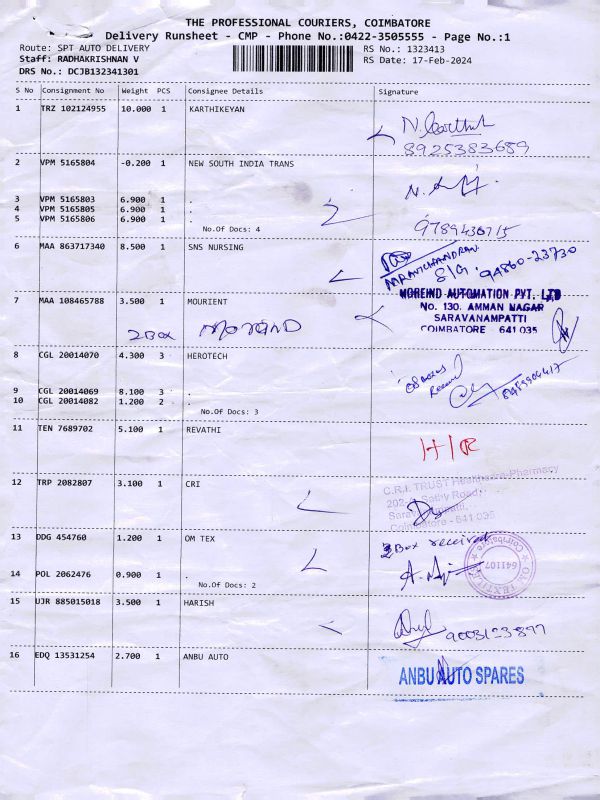 THE PROFESSIONAL COURIERS, COIMBATORE
Delivery Runsheet - CMP - Phone No.:0422-3505555 - Page No.:1
Route: SPT AUTO DELIVERY RS No.: 1323413
Staff: RADHAKRISHNAN V RS Date: 17-Feb-2024
DRS No.: DCJB132341301
S No Consignment No Weight PCS Consignee Details Signature
1 TRZ 102124955 10.000 1 KARTHIKEYAN
N. Karthik
8925383689
2 VPM 5165804 -0.200 1 NEW SOUTH INDIA TRANS
3 VPM 5165803 6.900 1 .
4 VPM 5165805 6.900 1 .
5 VPM 5165806 6.900 1 .
No.Of Docs: 4
9789436715
6 MAA 863717340 8.500 1 SNS NURSING
M.RAVICHANDRAN
S/G 94860-23730
7 MAA 108465788 3.500 1 MOURIENT
2Box MORIND
MOREIND AUTOMATION PVT. LTD
No. 130. AMMAN NAGAR
SARAVANAMPATTI
COIMBATORE - 641 035
8 CGL 20014070 4.300 3 HEROTECH
9 CGL 20014069 8.100 3 .
10 CGL 20014082 1.200 2 .
No.Of Docs: 3
11 TEN 7689702 5.100 1 REVATHI
H/R
12 TRP 2082807 3.100 1 CRI
C.R.I. TRUST Healthcare Pharmacy
Sathy Road,
Coimbatore - 641 035
13 DDG 454760 1.200 1 OM TEX
2 Box received
Coimbatore
641107
14 POL 2062476 0.900 1 .
No.Of Docs: 2
15 UJR 885015018 3.500 1 HARISH
9003123897
16 EDQ 13531254 2.700 1 ANBU AUTO
ANBU AUTO SPARES